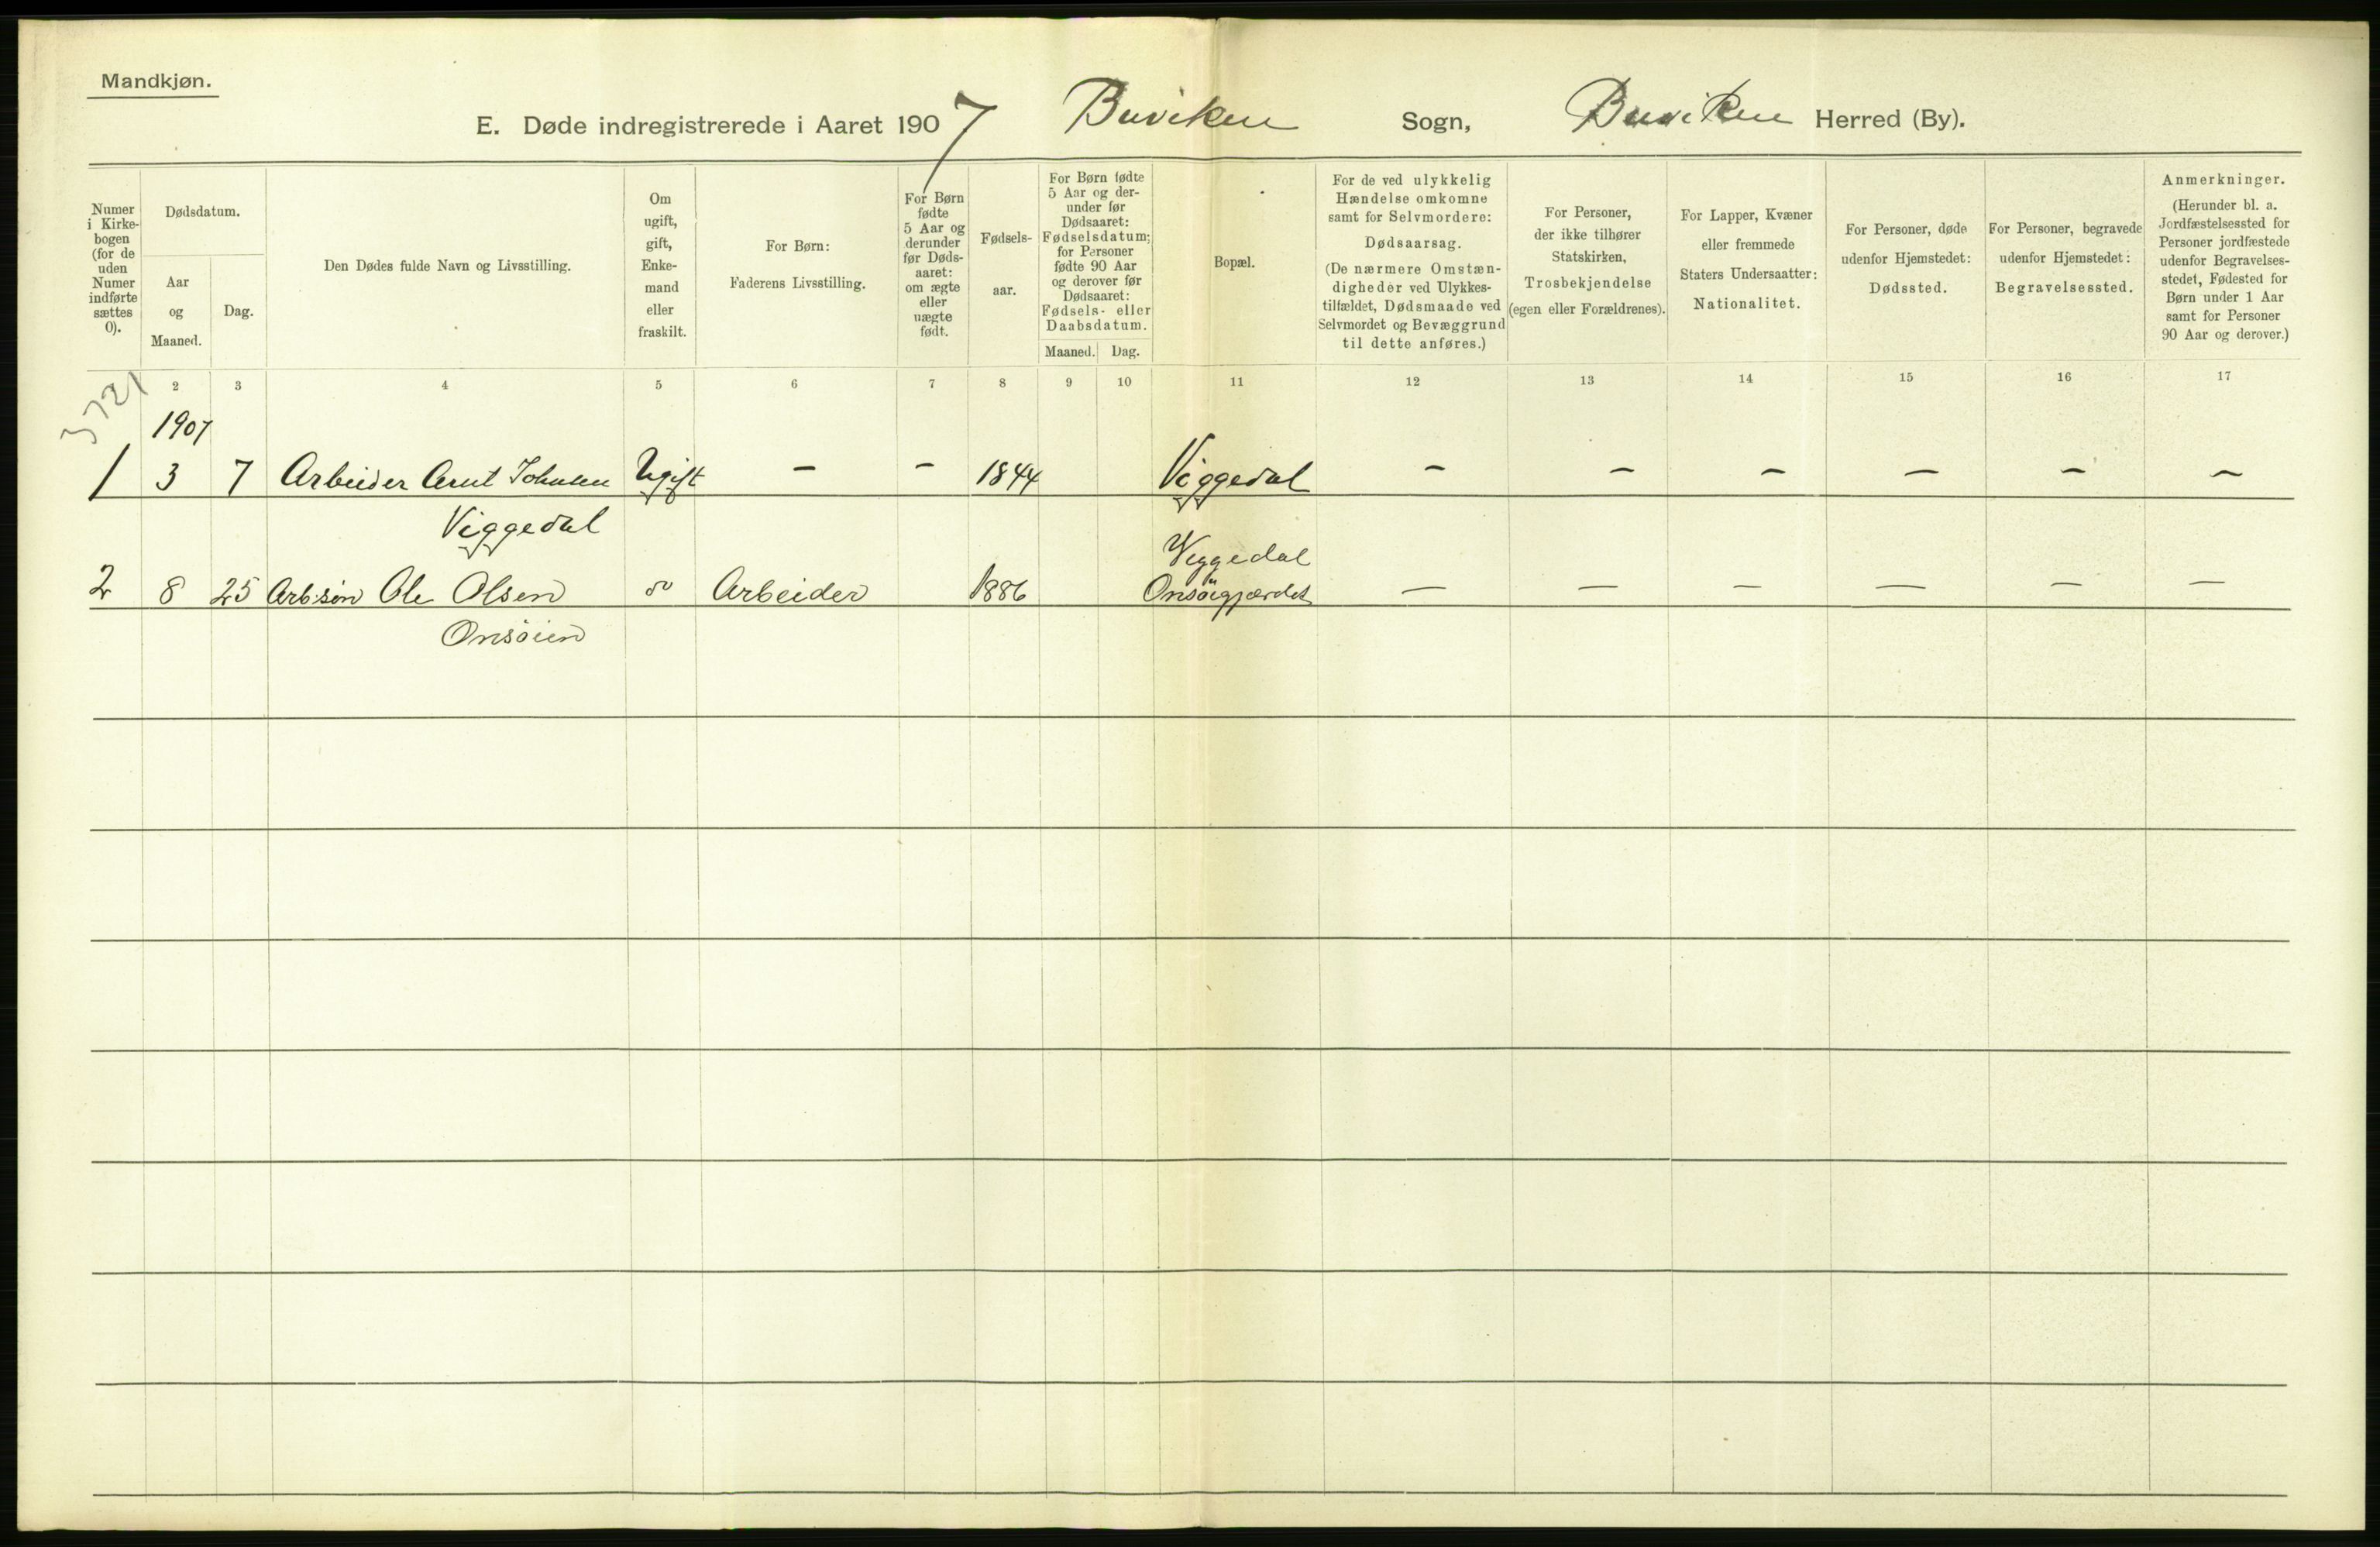 Mandkjøn.
E. Døde indregistrerede i Aaret 1907 Buviken Sogn, Buviken Herred (By).
Numer i Kirkebogen (for de uden Numer indførte sættes 0).
Dødsdatum.
Aar og Maaned.
Dag.
Den Dødes fulde Navn og Livsstilling.
Om ugift, gift, Enkemand eller fraskilt.
For Børn: Faderens Livsstilling.
For Børn fødte 5 Aar og derunder før Dødsaaret: om ægte eller uægte født.
Fødselsaar.
For Børn fødte 5 Aar og derunder før Dødsaaret: Fødselsdatum; for Personer fødte 90 Aar og derover før Dødsaaret: Fødsels- eller Daabsdatum.
Maaned. Dag.
Bopæl.
For de ved ulykkelig Hændelse omkomne samt for Selvmordere: Dødsaarsag. (De nærmere Omstændigheder ved Ulykkestilfældet, Dødsmaade ved Selvmordet og Bevæggrund til dette anføres.)
For Personer, der ikke tilhører Statskirken, Trosbekjendelse (egen eller Forældrenes).
For Lapper, Kvæner eller fremmede Staters Undersaatter: Nationalitet.
For Personer, døde udenfor Hjemstedet: Dødssted.
For Personer, begravede udenfor Hjemstedet: Begravelsessted.
Anmerkninger. (Herunder bl. a. Jordfæstelsessted for Personer jordfæstede udenfor Begravelsesstedet, Fødested for Børn under 1 Aar samt for Personer 90 Aar og derover.)
2 3 4 5 6 7 8 9 10 11 12 13 14 15 16 17
3721
1907
1 3 7 Arbeider Arnt Johnsen Ugift - - 1844 Viggedal - - - - - -
Viggedal
Viggedal
2 8 25 Arb.søn Ole Olsen do Arbeider 1886 Onsöigjærdet - - - - - -
Onsöien